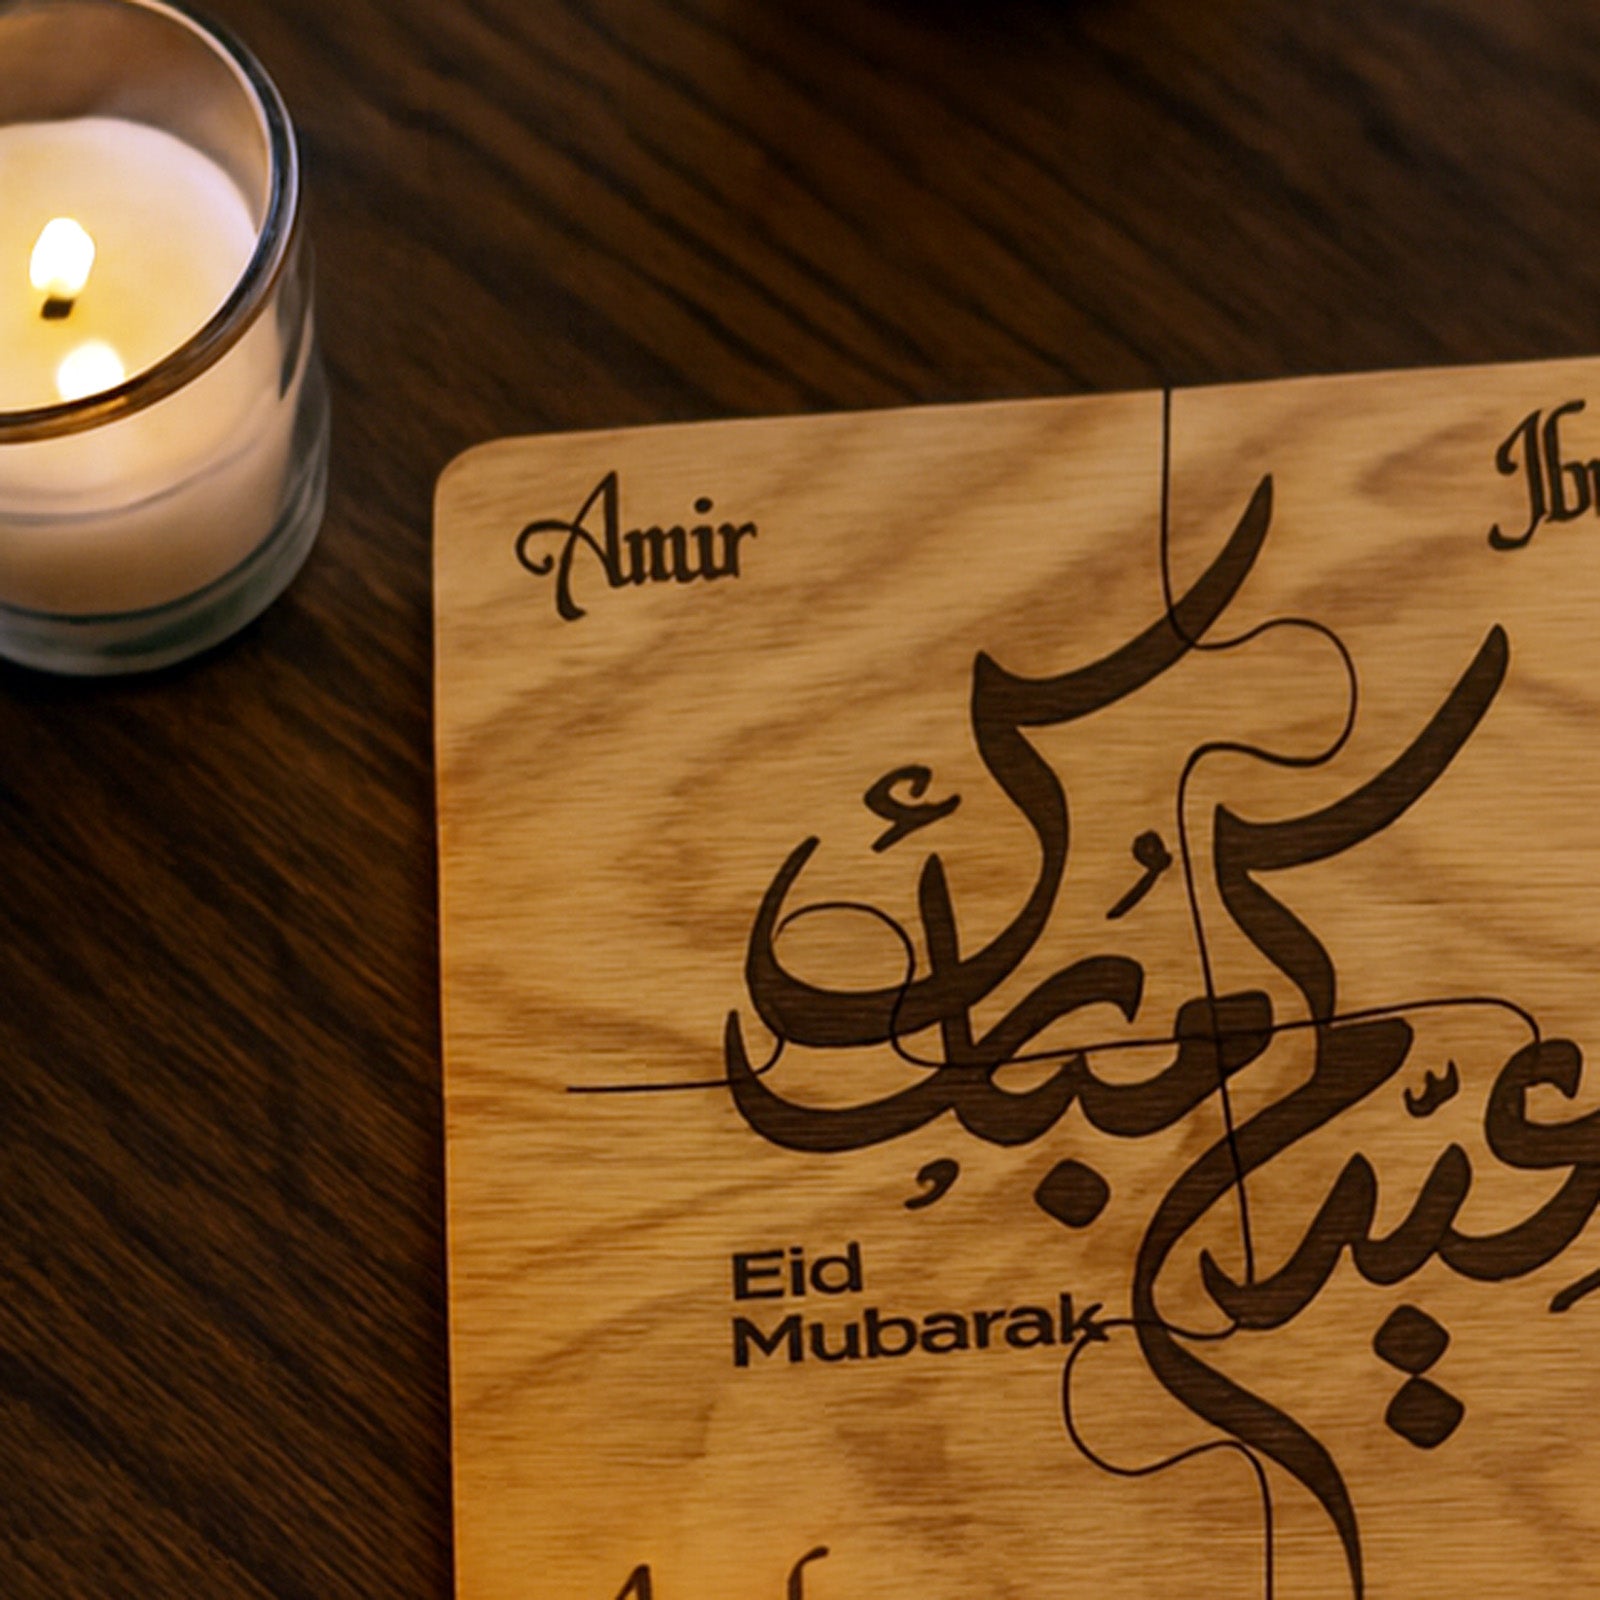 Amir
عيد مبارك
Eid
Mubarak